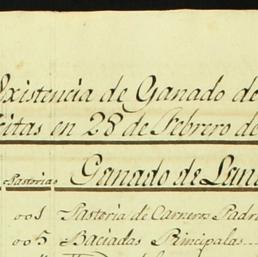 Existencia de Ganado de
citas en 28 de Febrero de
Pastorias Ganado de Lan
001 Pastoria de Carneros Padr
005 Baciadas Principalas